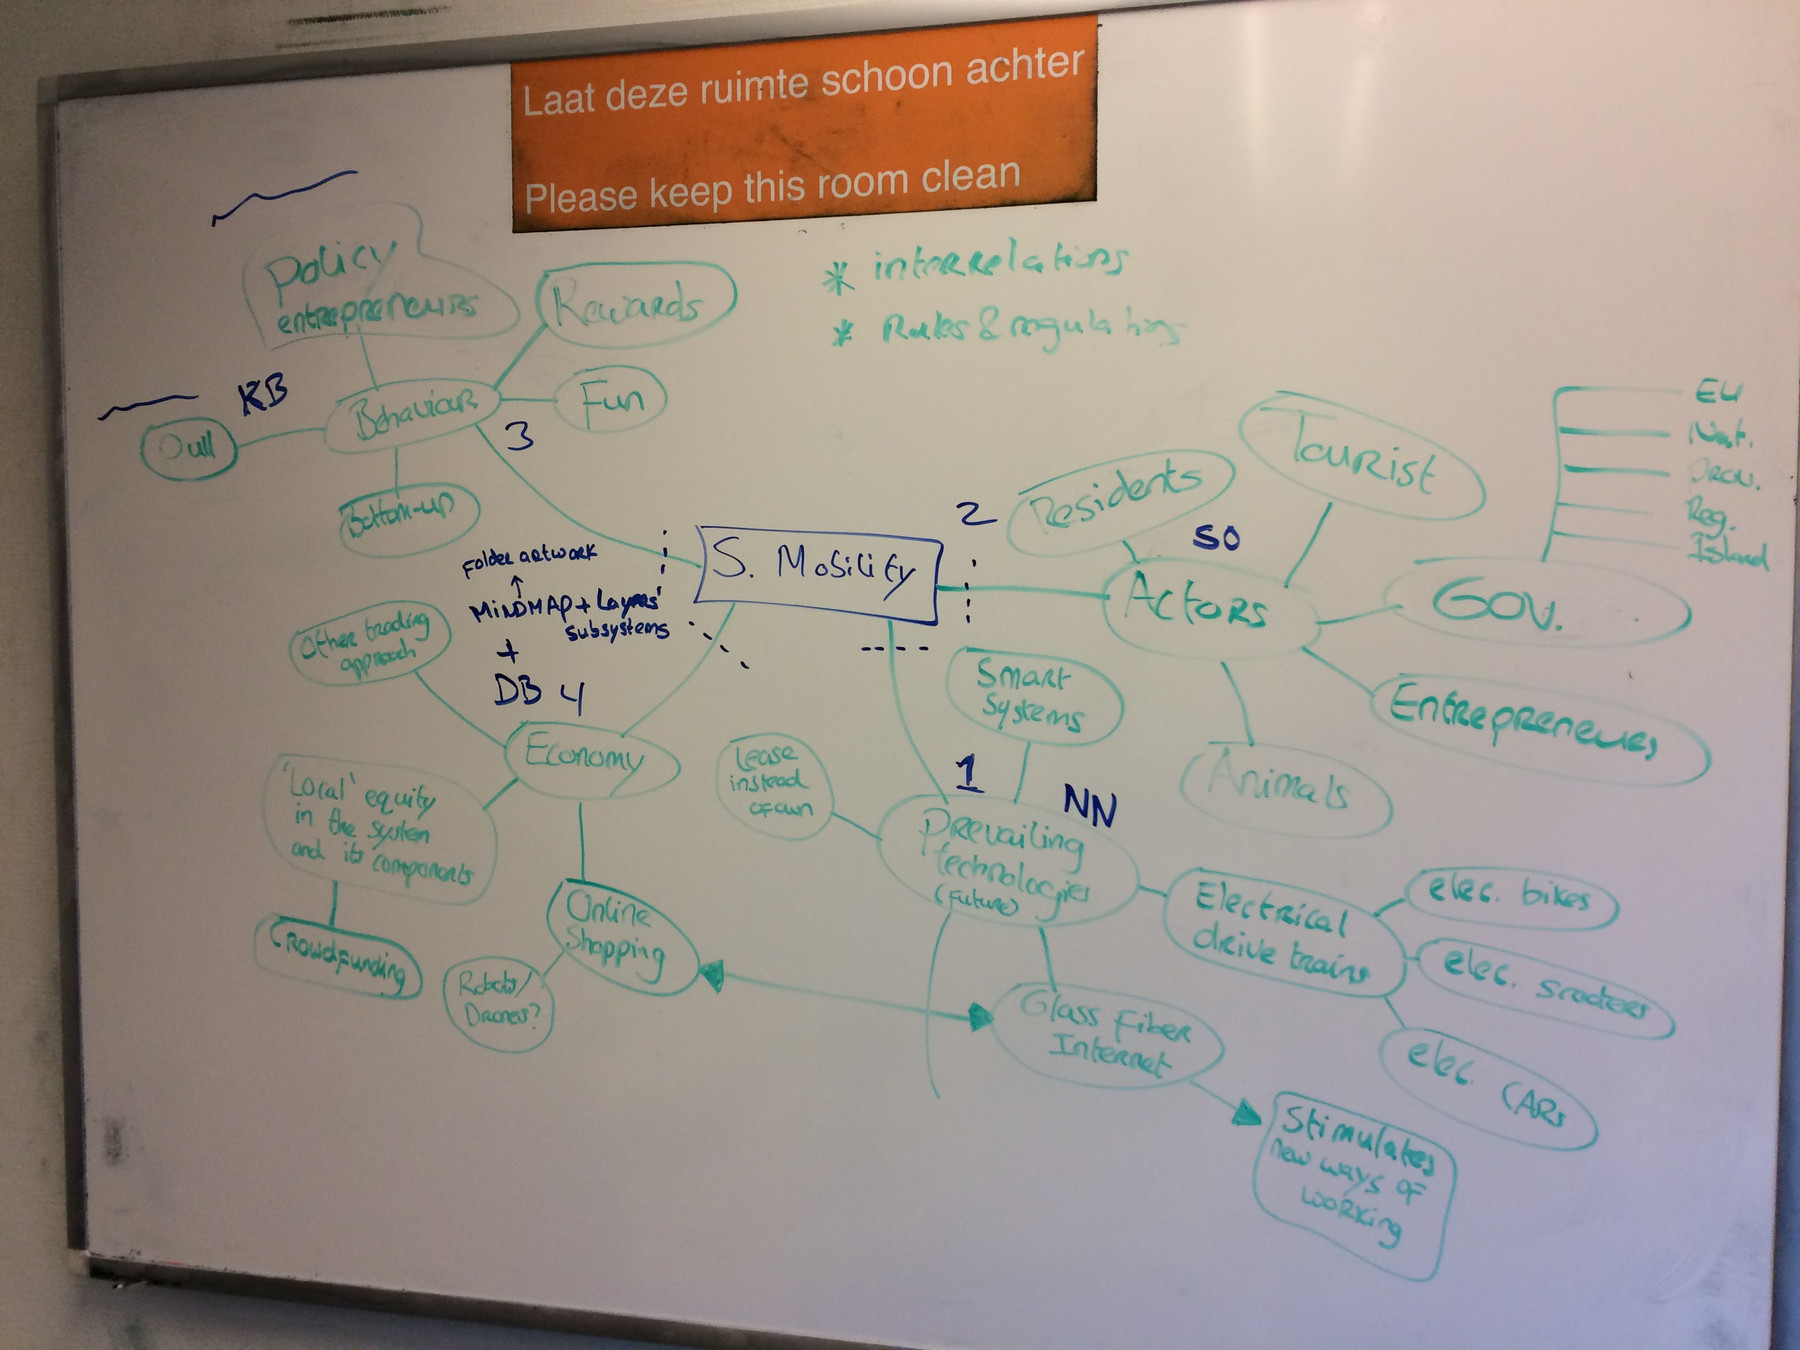 Laat deze ruimte schoon achter
Please keep this room clean
* interrelations
* Rules & regulations
Policy
entrepreneurs
Rewards
Fun
KB
Behaviour
3
Pull
Bottom-up
Folder artwork
MINDMAP + Layers'
subsystems
+
DB 4
S. Mobility
2
Residents
SO
Tourist
EU
Nat.
Prov.
Reg.
Island
Actors
Gov.
Entrepreneurs
Animals
Other trading
approach
Economy
'Local' equity
in the system
and its components
Crowdfunding
Online
Shopping
Robots/
Drones?
Smart
Systems
Lease
instead
of own
1
NN
Prevailing
technologies
(Future)
Electrical
drive trains
elec. bikes
elec. scooters
elec. CARs
Glass Fiber
Internet
Stimulates
new ways of
working